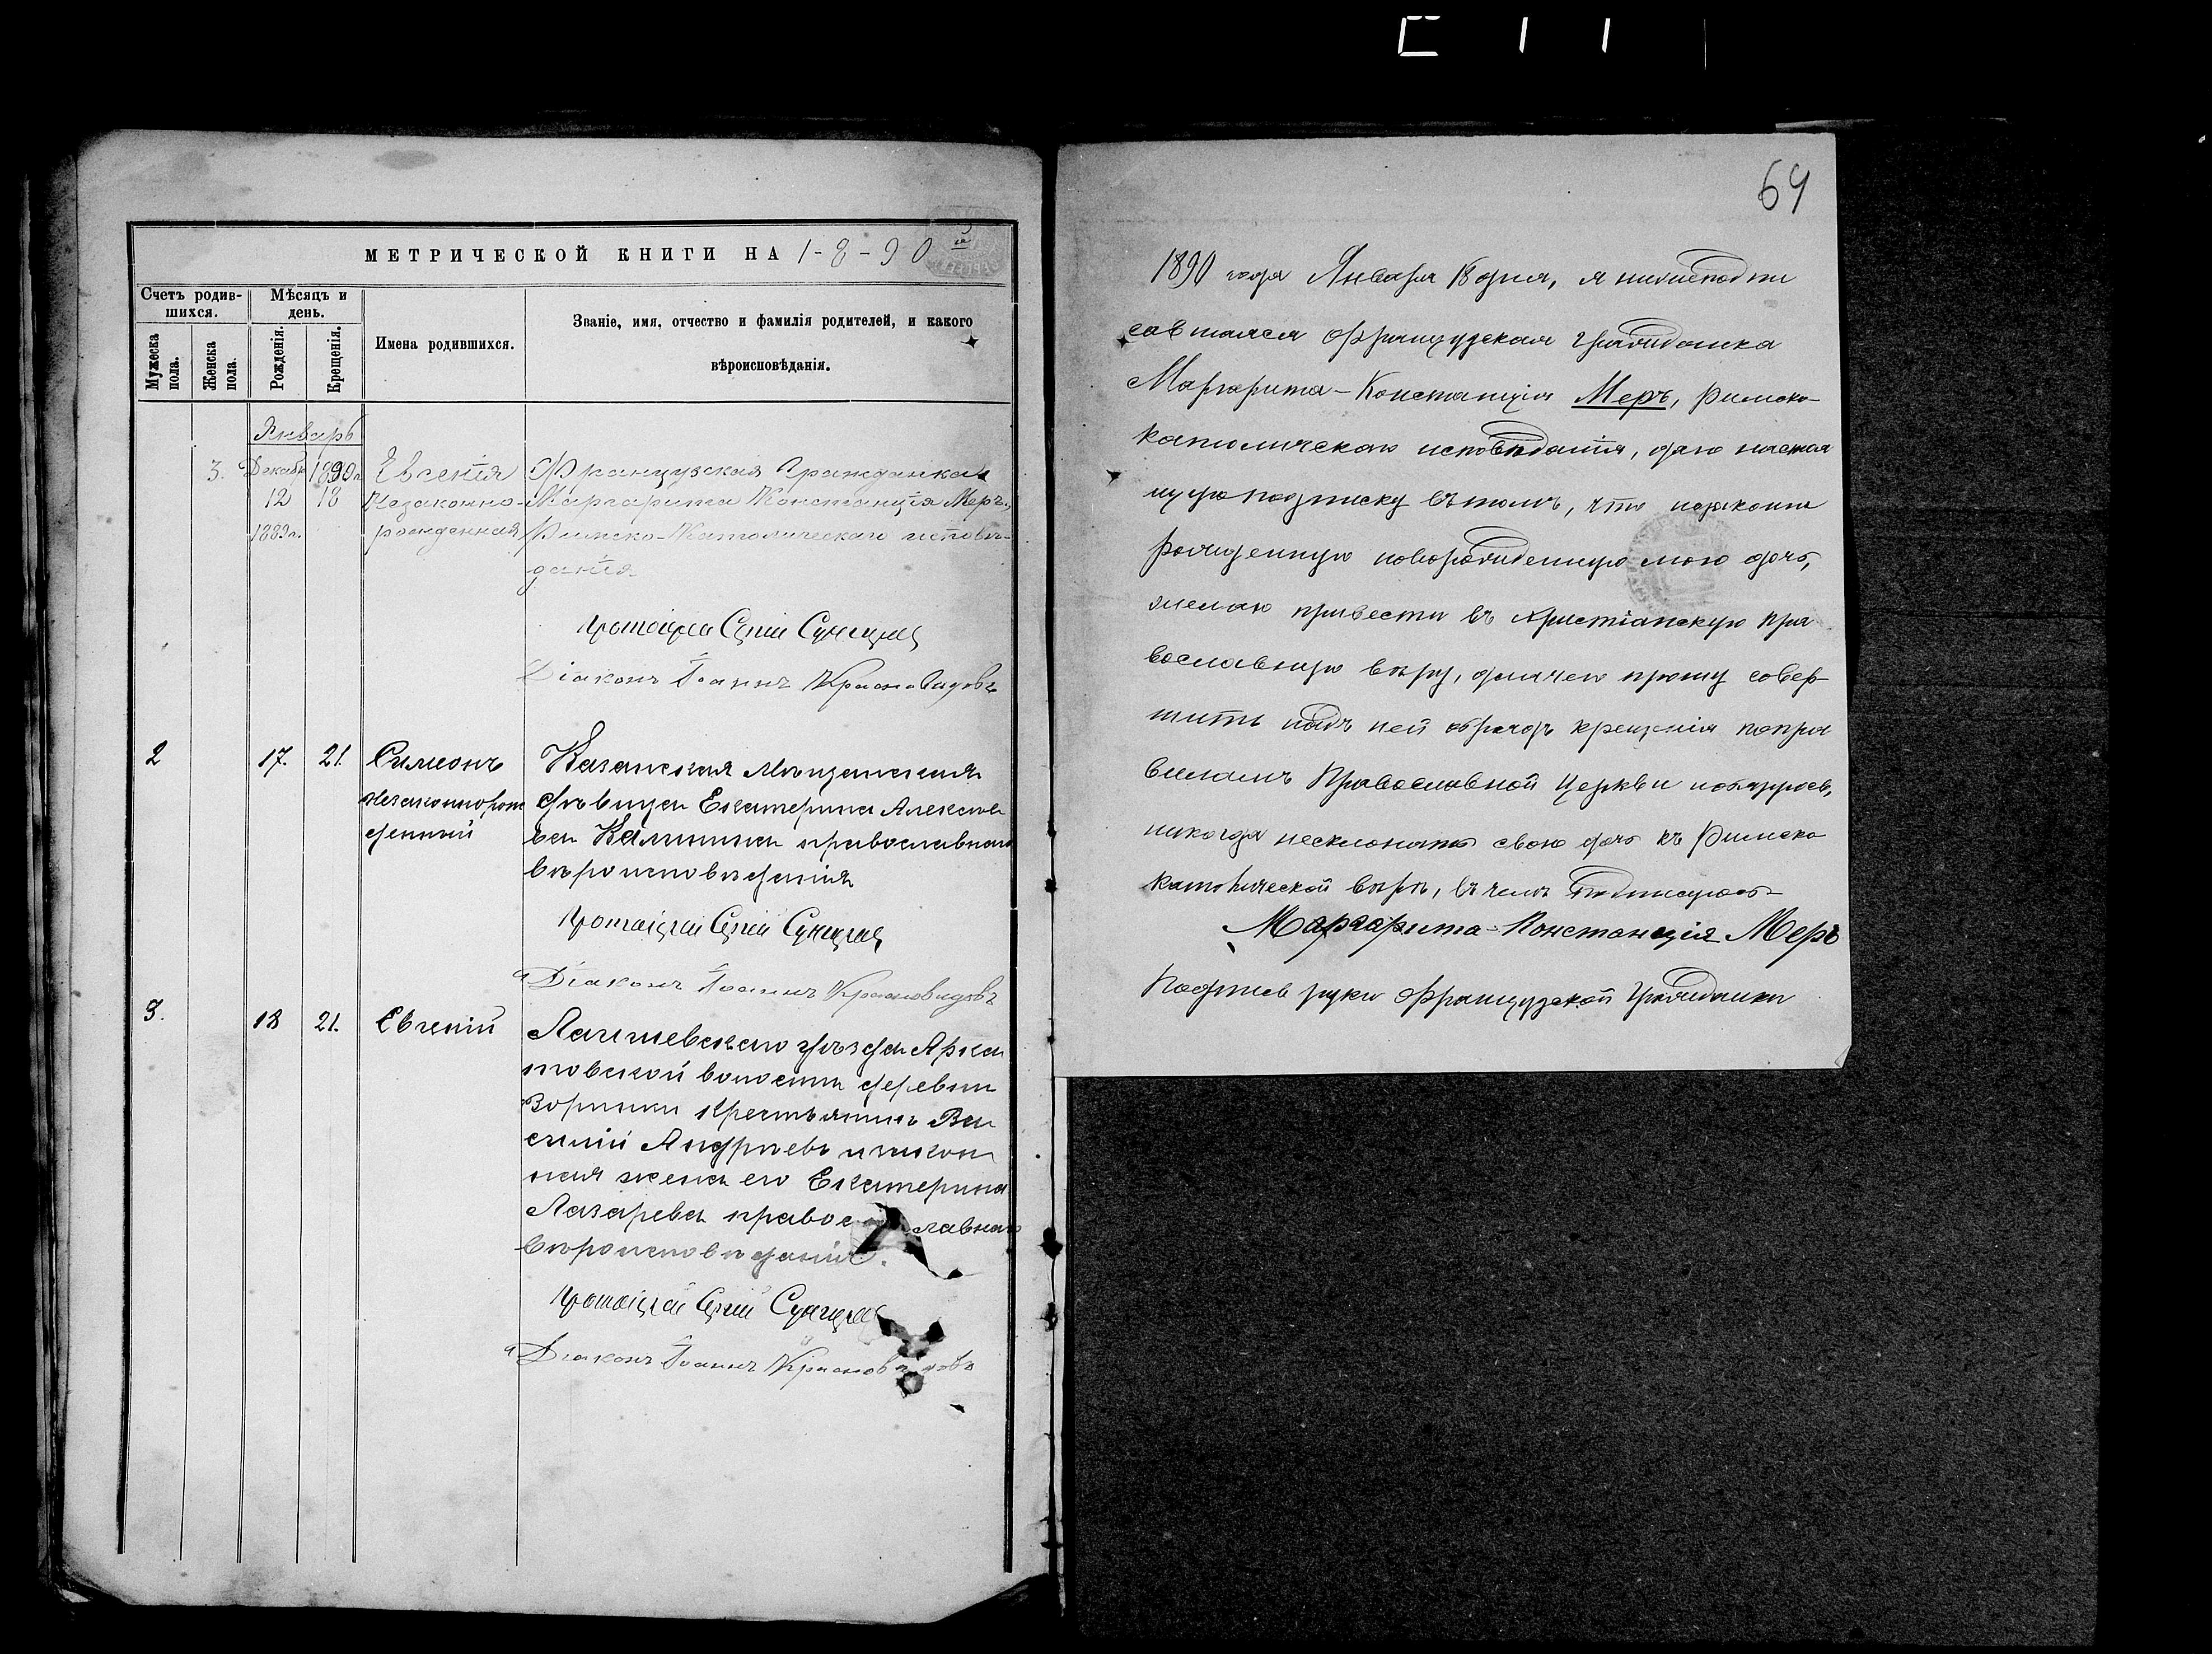 МЕТРИЧЕСКОЙ КНИГИ НА 1-8-90
Счетъ родив-
шихся.
Мѣсяцъ и
день.
Мужеска
пола.
Женска
пола.
Рожденія.
Крещенія.
Имена родившихся.
Званіе, имя, отчество и фамилія родителей, и какого
вѣроисповѣданія.
Январь
3. Декабр 1890 г Евгенія Французская Гражданка
12 18 Незаконно- Маргарита Констанція Меръ,
1889 г. рожденная Римско-Католическаго исповѣ-
данія
Протоіерей Сергій
Діаконъ Іоаннъ Красновидовъ
2 17. 21. Симеонъ Казанская Мѣщанская
незаконнорож дѣвица Екатерина Алексѣе
денный ва Калинина православнаго
вѣроисповѣданія
Протоіерей Сергій
Діаконъ Іоаннъ Красновидовъ
3. 18 21. Евгеній Лаишевскаго уѣзда Арка
товской волости деревни
Зориныхъ крестьянинъ Ва
силій Андреевъ и закон
ная жена его Екатерина
Лазарева православнаго
вѣроисповѣданія.
Протоіерей Сергій
Діаконъ Іоаннъ Красновидовъ
64
1890 года Января 18 дня, я нижеподпи
савшаяся французская гражданка
Маргарита-Констанція Меръ, Римско-
католическаго исповѣданія, даю настоя
щую подписку въ томъ, что незаконно
рожденную новорожденную мою дочь,
желаю привести въ Христіанскую пра
вославную вѣру, для чего прошу совер
шить надъ ней обрядъ крещенія по пра
виламъ Православной Церкви и обязуюсь,
никогда несклонять свою дочь къ Римско
католической вѣрѣ, въ чемъ и подписуюсь
Маргарита-Констанція Меръ
Подпись руки французской гражданки